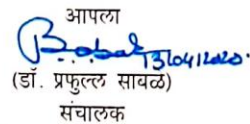 आपला
13/04/2020.
(डॉ. प्रफुल्ल सावळे)
संचालक